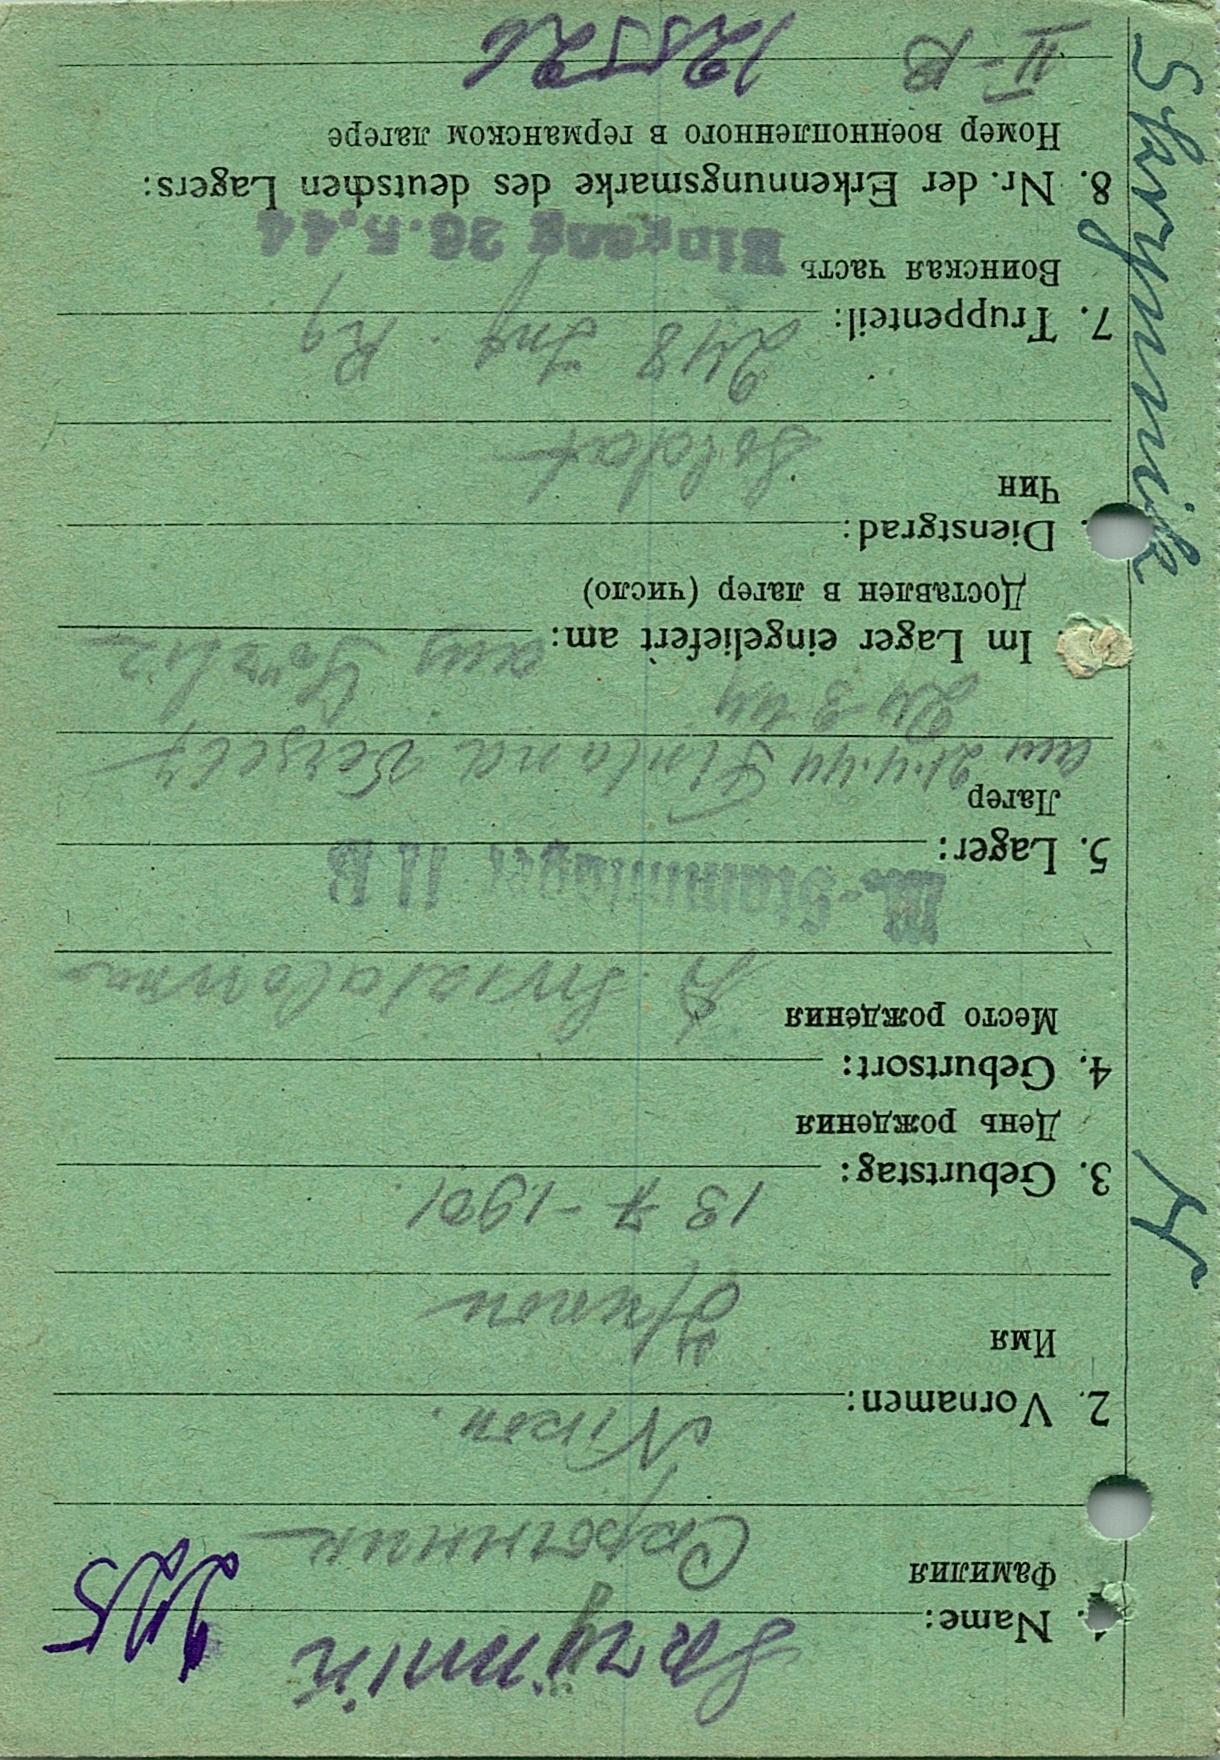 1. Name: Saryimnik
Фамилия Сарытник
2. Vornamen: Nikon.
Имя
3. Geburtstag: 13 7 - 1901.
День рождения
4. Geburtsort:
Место рождения
M.-Stammlager II B
5. Lager:
Лагер
am 21.4.44 Fintana
24 3 44
Im Lager eingeliefert am: aus
Доставлен в лагер (число)
Dienstgrad:
Чин
Soldat
7. Truppenteil: 248 Inf. Rg
Воинская часть
Eingang 26.5.44
8. Nr. der Erkennungsmarke des deutschen Lagers:
Номер военнопленного в германском лагере
II-B 125526
Starymnik
N